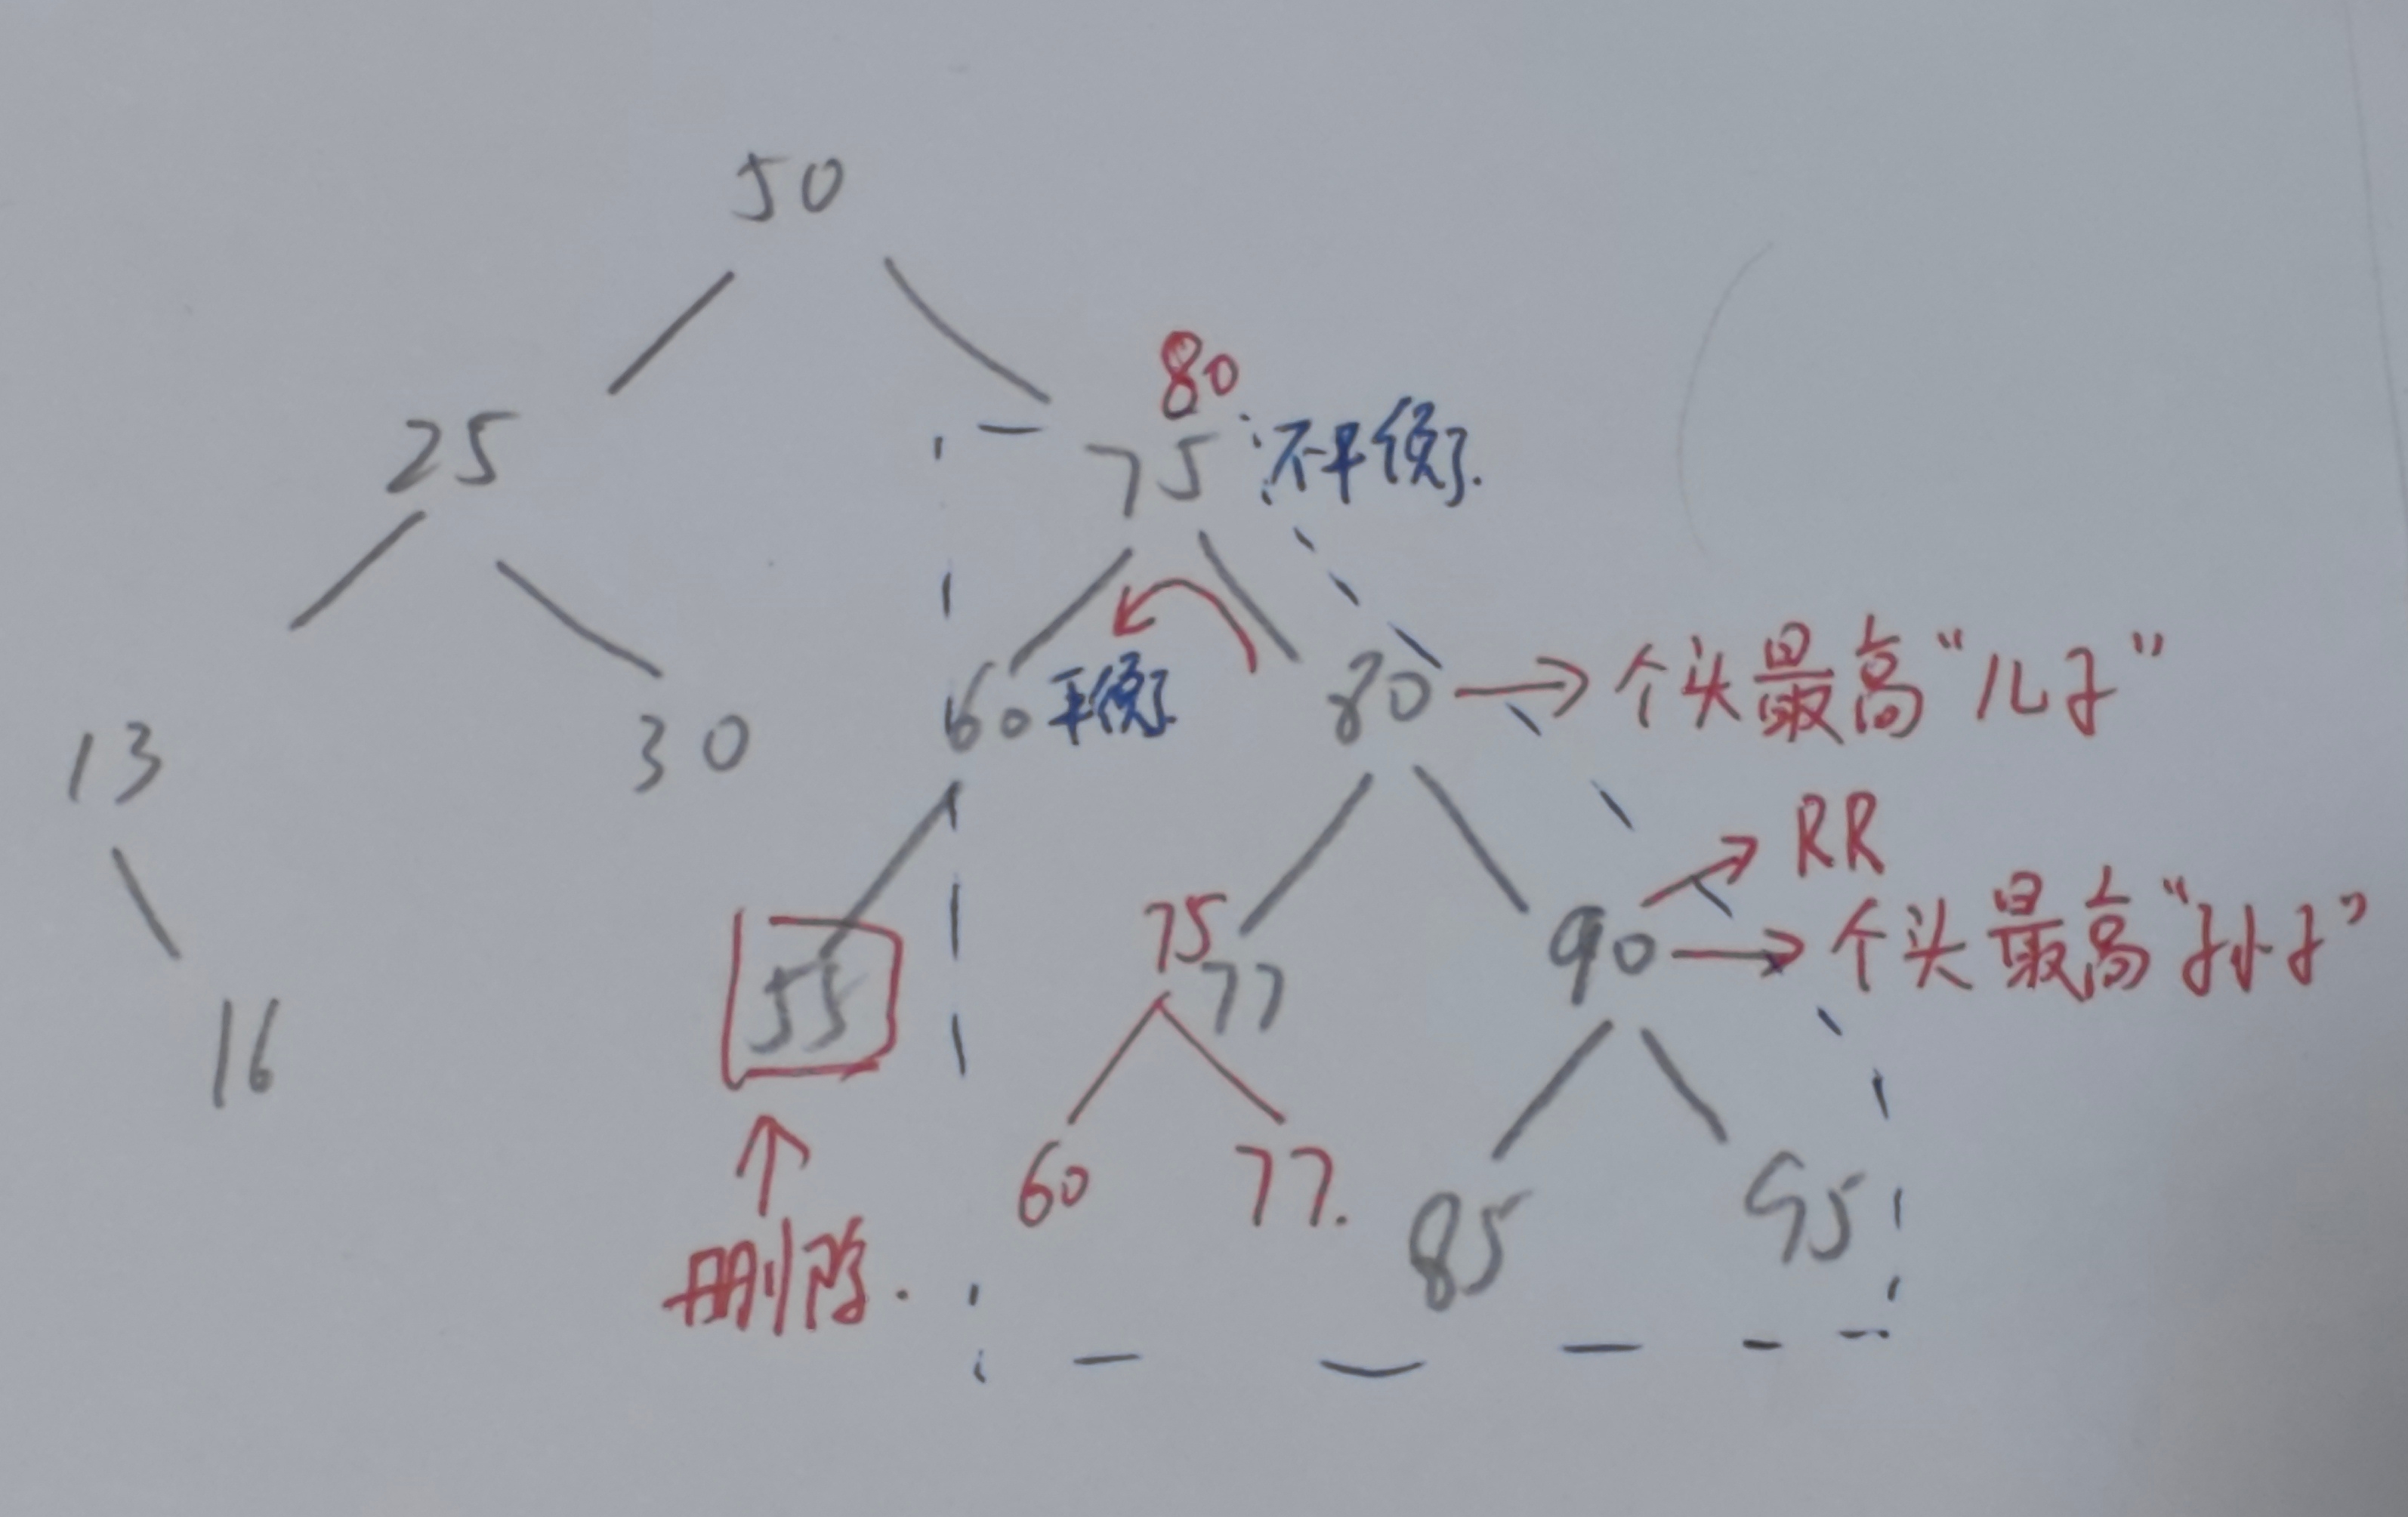 50
80
25
75 不平衡了.
60 平衡了
80 → 个头最高“儿子”
13
30
→ RR
75
77
90 → 个头最高“孙子”
55
16
60
77.
85
95
删除.